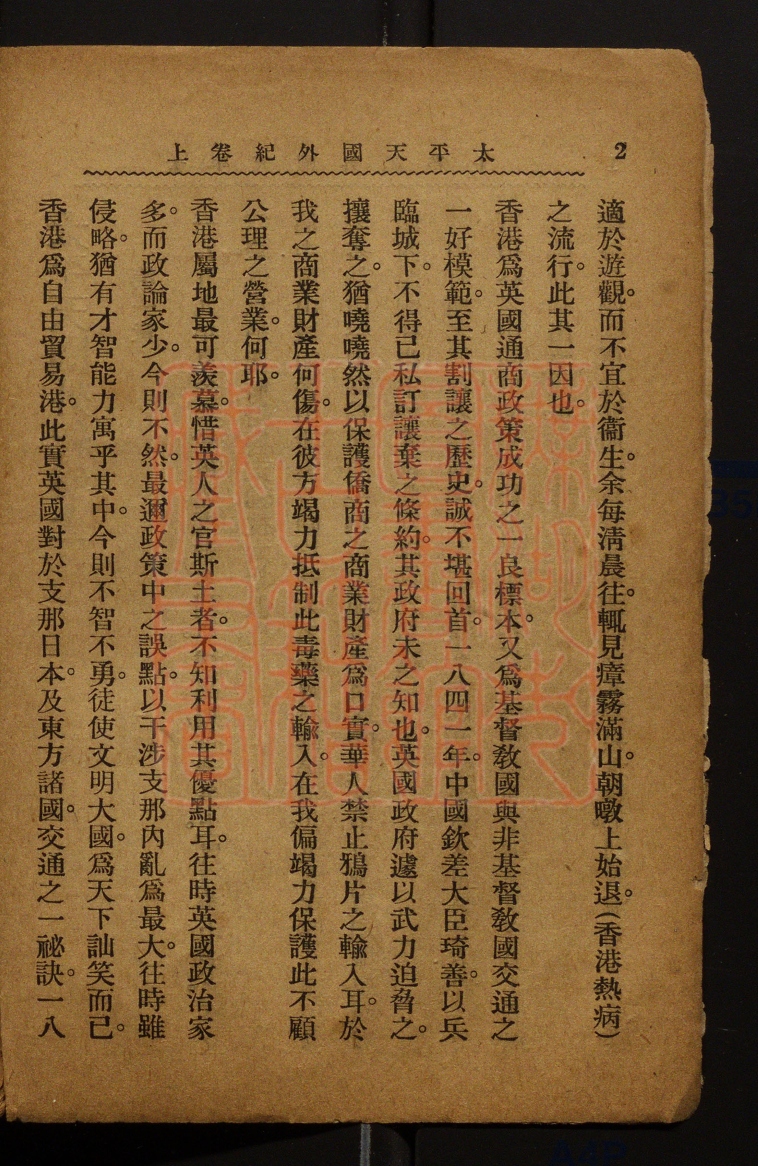 太平天國外紀卷上
2
適於遊觀。而不宜於衞生。余每淸晨往。輒見瘴霧滿山。朝暾上始退。(香港熱病)
之流行。此其一因也。
香港爲英國通商政策成功之一良標本。又爲基督敎國與非基督敎國交通之
一好模範。至其割讓之歷史。誠不堪回首。一八四一年。中國欽差大臣琦善。以兵
臨城下。不得已私訂讓棄之條約。其政府未之知也。英國政府遽以武力迫脅之。
攘奪之。猶嘵嘵然以保護僑商之商業財產爲口實。華人禁止鴉片之輸入耳。於
我之商業財產何傷。在彼方竭力抵制此毒藥之輸入。在我偏竭力保護此不顧
公理之營業。何耶。
香港屬地最可羨慕。惜英人之官斯土者。不知利用其優點耳。往時英國政治家
多。而政論家少。今則不然。最邇政策中之誤點。以干涉支那內亂爲最大。往時雖
侵略。猶有才智能力寓乎其中。今則不智不勇。徒使文明大國。爲天下訕笑而已。
香港爲自由貿易港。此實英國對於支那日本。及東方諸國。交通之一祕訣。一八